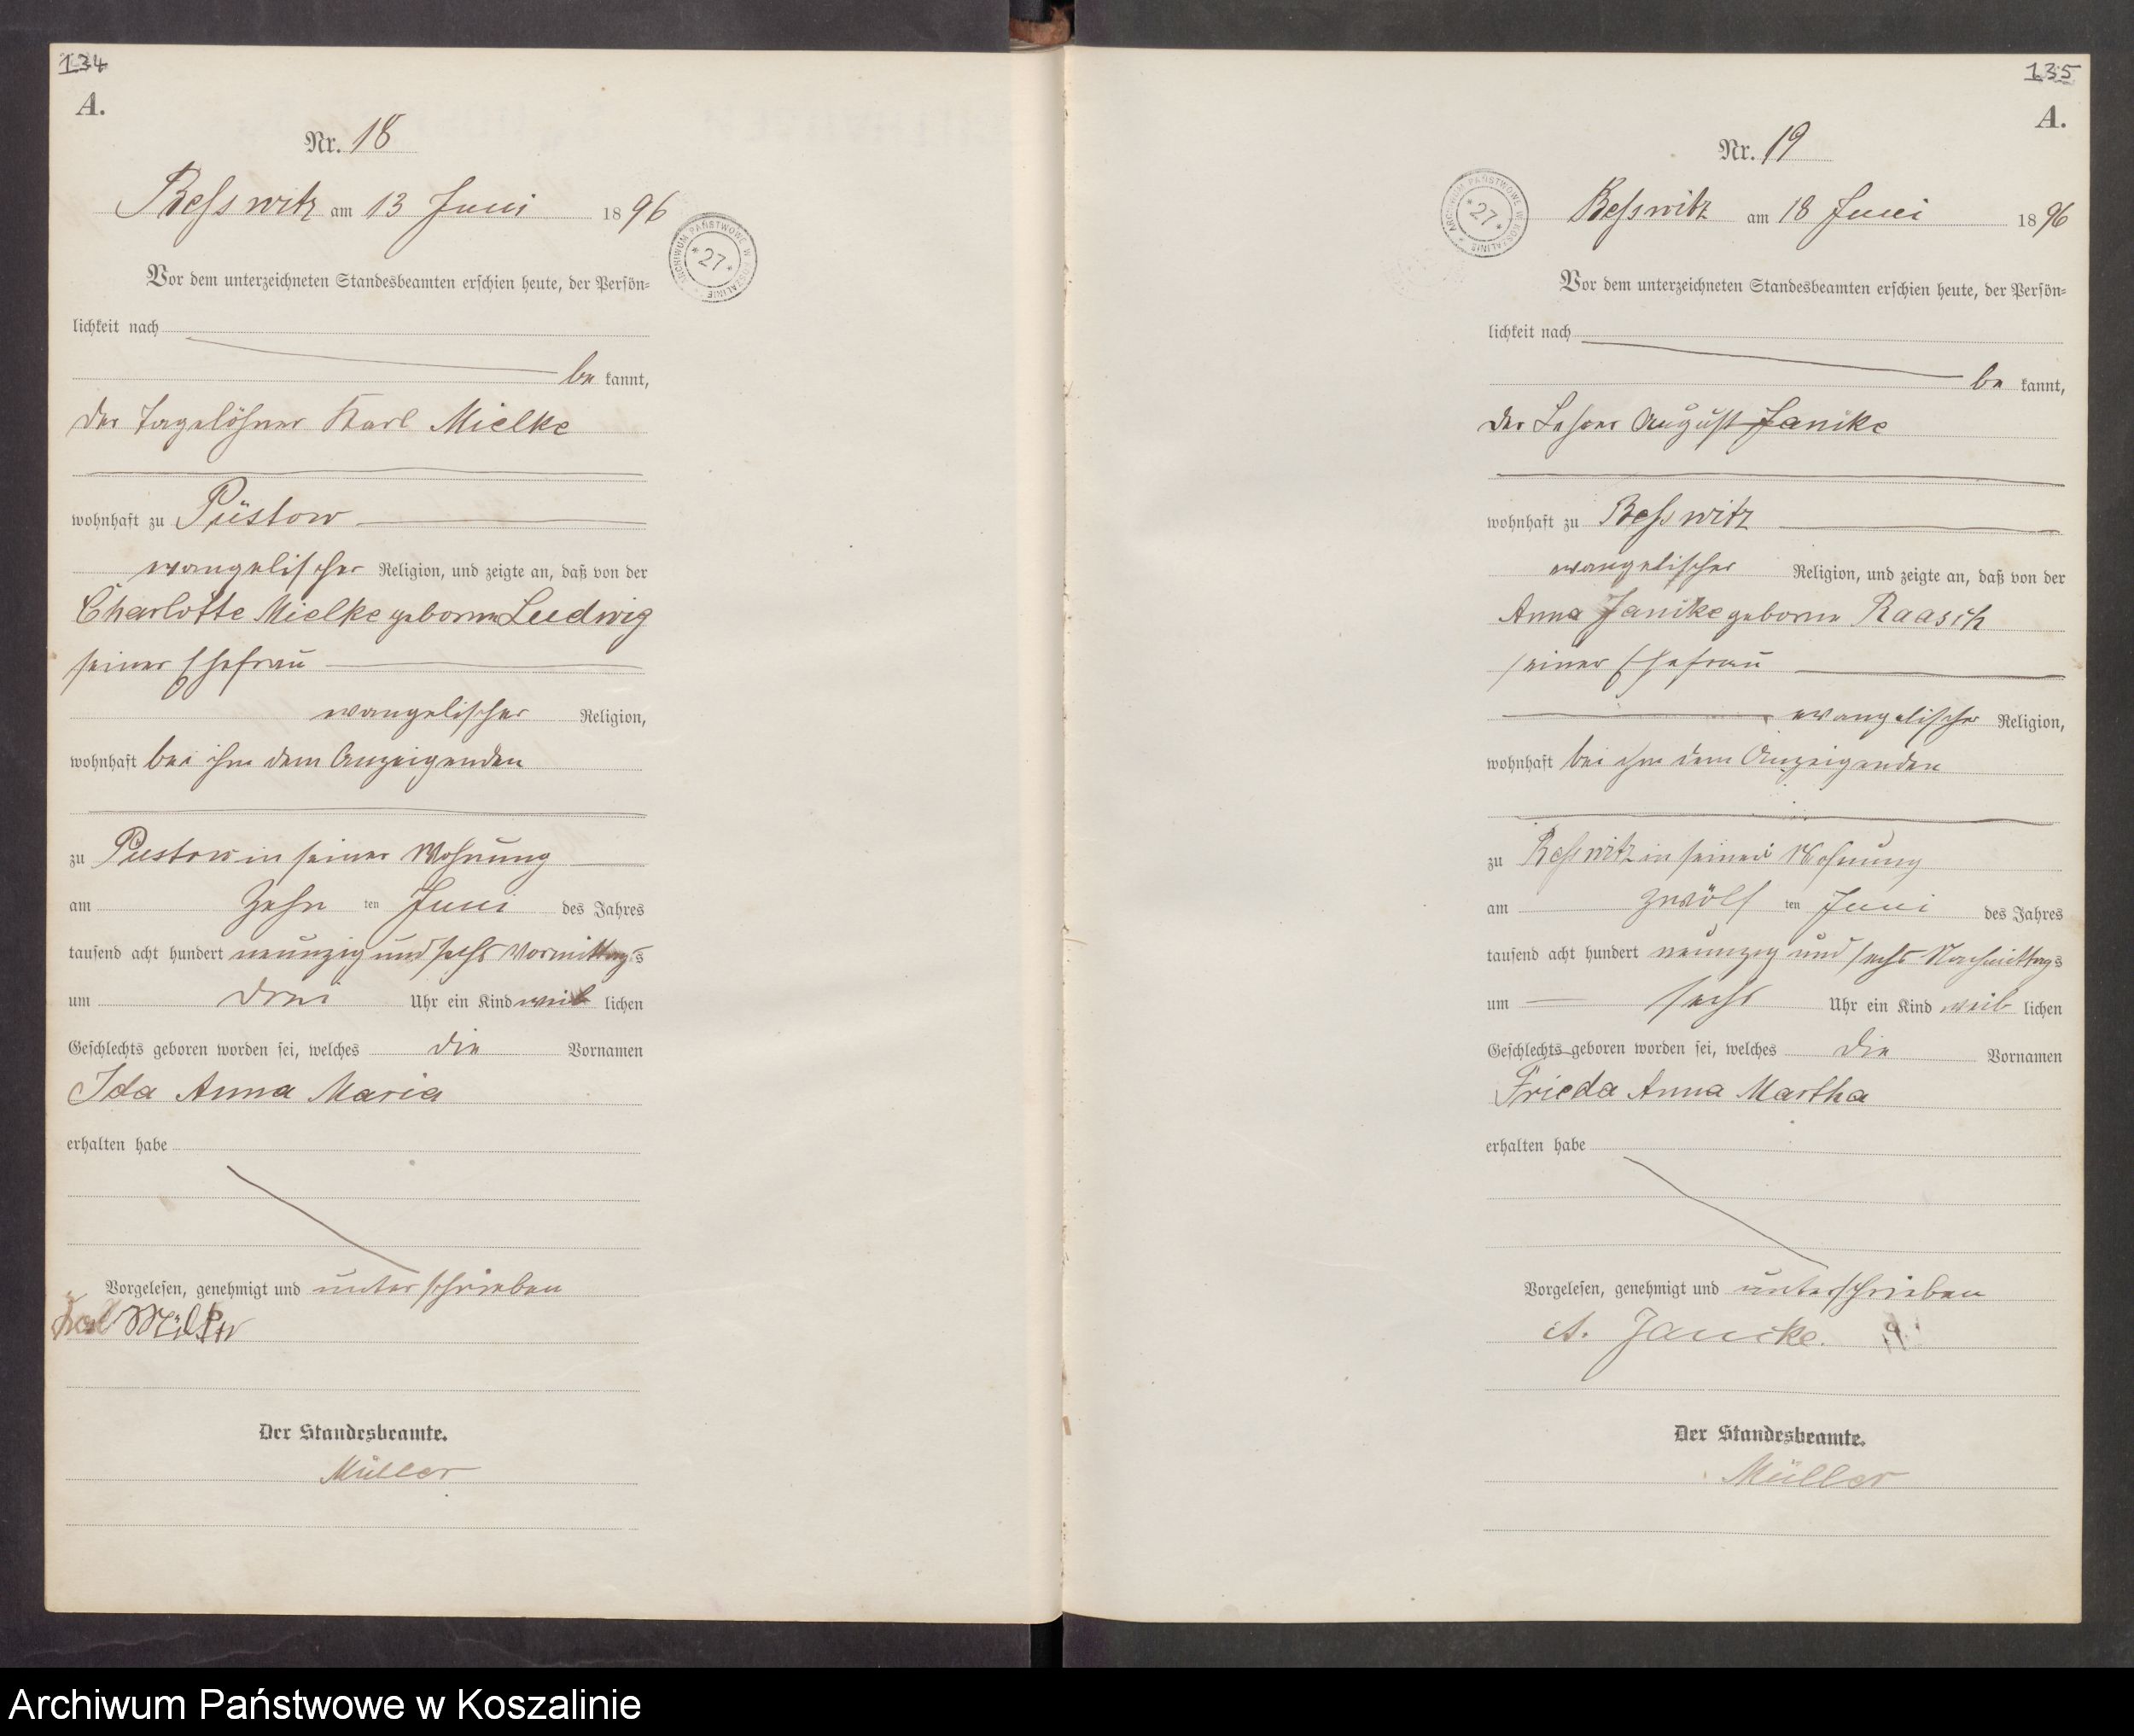 134
A.
Nr. 18
Besswitz am 13 Juni 1896
ARCHIWUM PAŃSTWOWE W KOSZALINIE
*27*
Vor dem unterzeichneten Standesbeamten erschien heute, der Persön-
lichkeit nach
be kannt,
der Tagelöhner Karl Mielke
wohnhaft zu Püstow
evangelischer Religion, und zeigte an, daß von der
Charlotte Mielke geborne Ludwig
seiner Ehefrau
evangelischer Religion,
wohnhaft bei ihm dem Anzeigenden
zu Püstow in seiner Wohnung
am Zehn ten Juni des Jahres
tausend acht hundert neunzig und sechs Vormittags
um drei Uhr ein Kind weib lichen
Geschlechts geboren worden sei, welches die Vornamen
Ida Anna Maria
erhalten habe
Vorgelesen, genehmigt und unterschrieben
Karl Mielke
Der Standesbeamte.
Müller
135
A.
Nr. 19
ARCHIWUM PAŃSTWOWE W KOSZALINIE
*27*
Besswitz am 18 Juni 1896
Vor dem unterzeichneten Standesbeamten erschien heute, der Persön-
lichkeit nach
be kannt,
der Lehrer August Janike
wohnhaft zu Besswitz
evangelischer Religion, und zeigte an, daß von der
Anna Janike geborne Raasch
seiner Ehefrau
evangelischer Religion,
wohnhaft bei ihm dem Anzeigenden
zu Besswitz in seiner Wohnung
am zwölf ten Juni des Jahres
tausend acht hundert neunzig und sechs Nachmittags
um sechs Uhr ein Kind weib lichen
Geschlechts geboren worden sei, welches die Vornamen
Frieda Anna Martha
erhalten habe
Vorgelesen, genehmigt und unterschrieben
A. Janicke.
Der Standesbeamte.
Müller
Archiwum Państwowe w Koszalinie